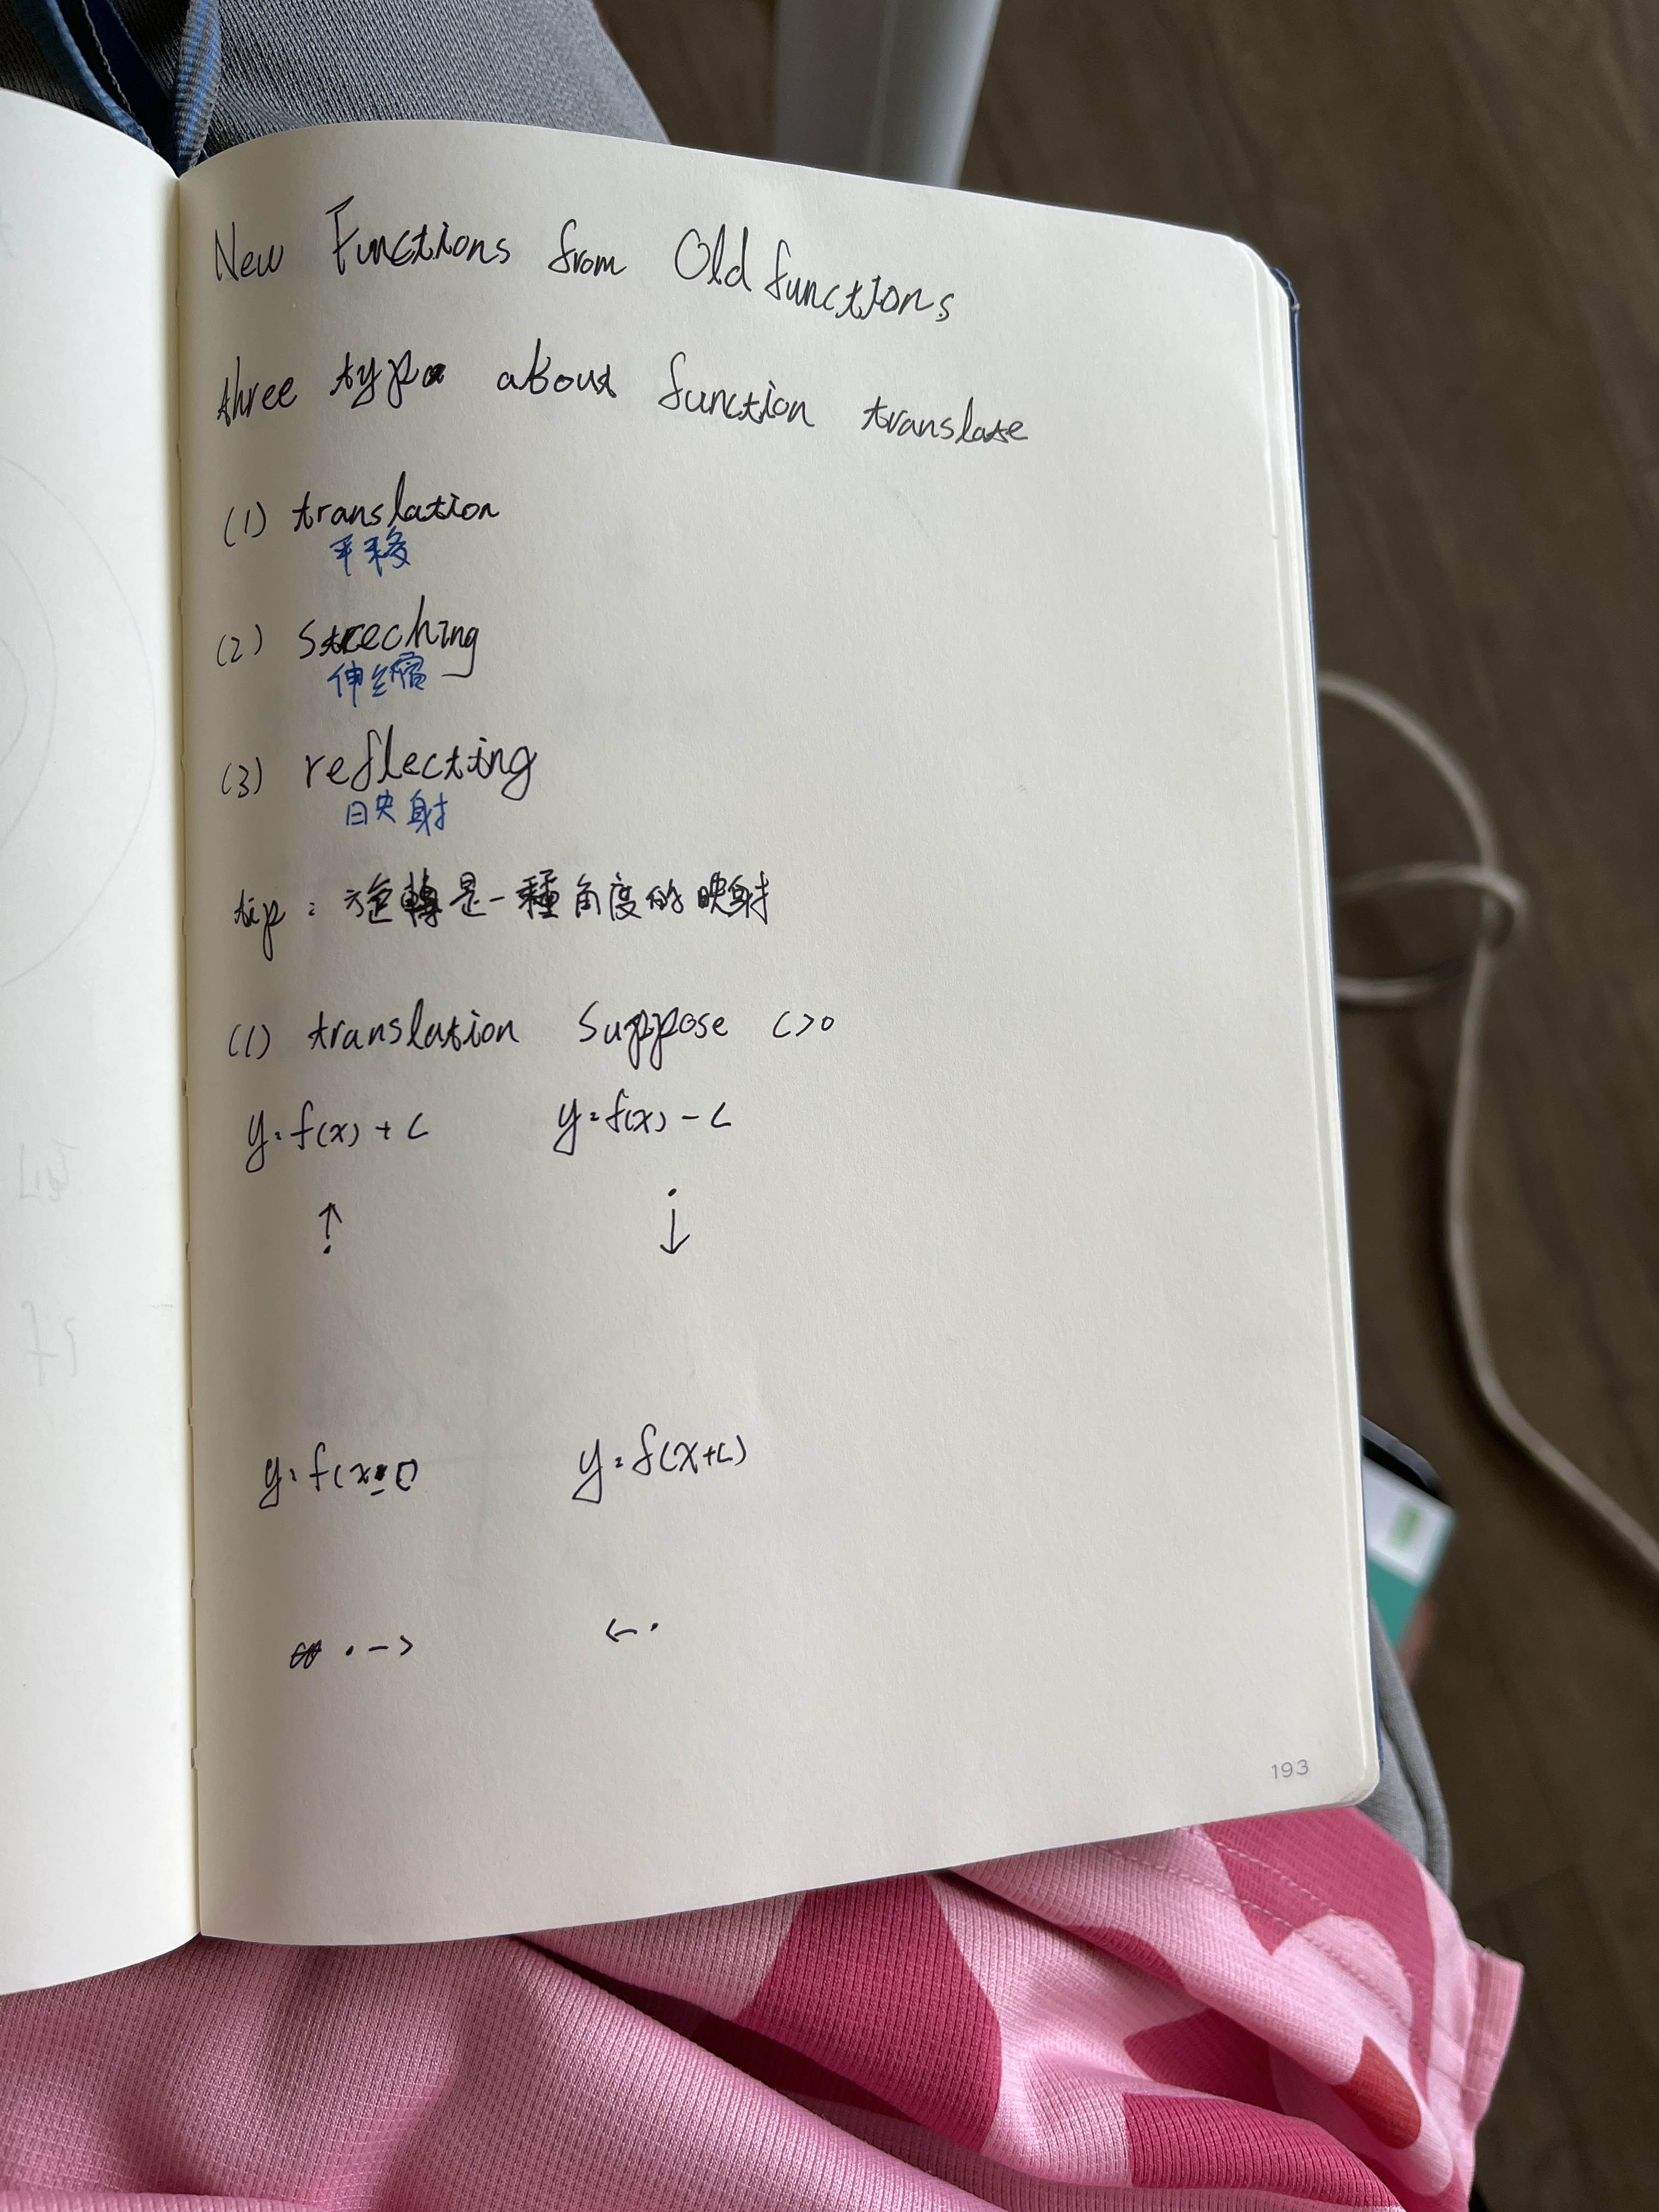 New Functions from Old functions
three type about function translate
(1) translation
平移
(2) streching
伸縮
(3) reflecting
映射
tip : 旋轉是一種角度的映射
(1) translation Suppose c>0
y=f(x)+c y=f(x)-c
↑ ↓
y=f(x-c) y=f(x+c)
→ ←
193